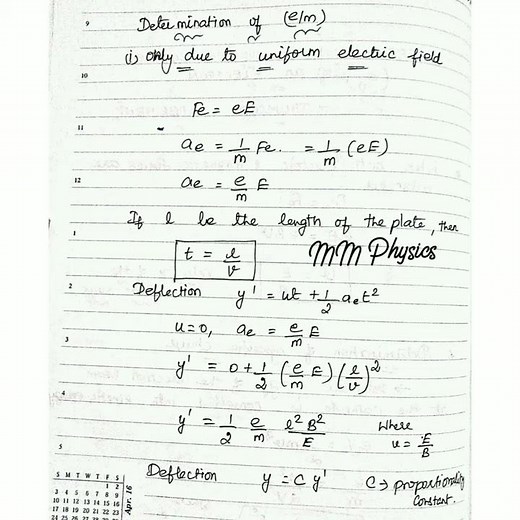 9
Determination of (e/m)
(i) only due to uniform electric field
10
Fe = eE
11
ae = 1/m Fe. = 1/m (eE)
12
ae = e/m E
If l be the length of the plate, then
1
t = l/v
MM Physics
2
Deflection y' = ut + 1/2 aet²
u=0, ae = e/m E
3
y' = 0 + 1/2 (e/m E) (l/v)²
4
y' = 1/2 e/m l²B²/E where u = E/B
5
Deflection y = C y' C → proportionality constant.
S M T W T F S
1 2
3 4 5 6 7 8 9
10 11 12 13 14 15 16
17 18 19 20 21 22 23
24 25 26 27 28 29 30
Apr. 16